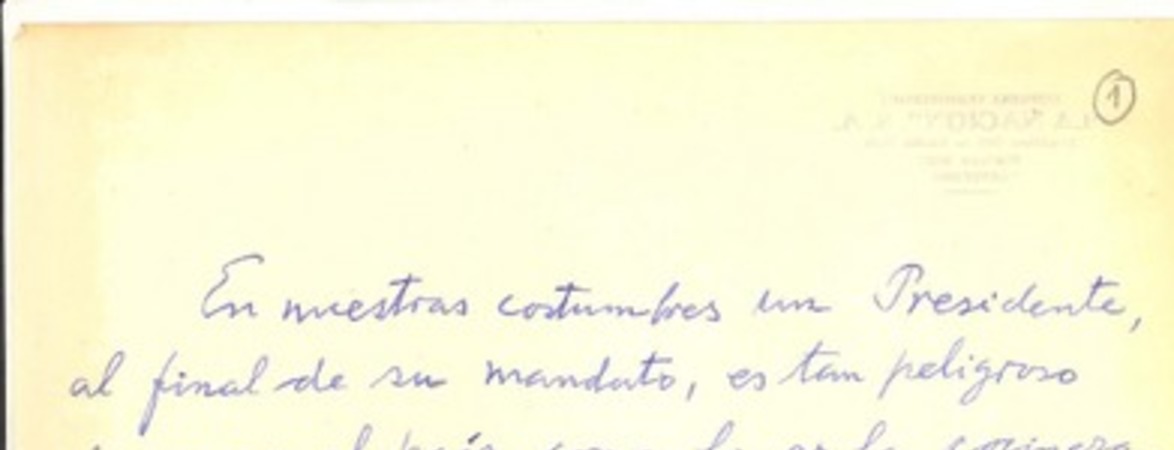 ①
"LA NACION" S. A.
En nuestras costumbres un Presidente,
al final de su mandato, es tan peligroso
el país como